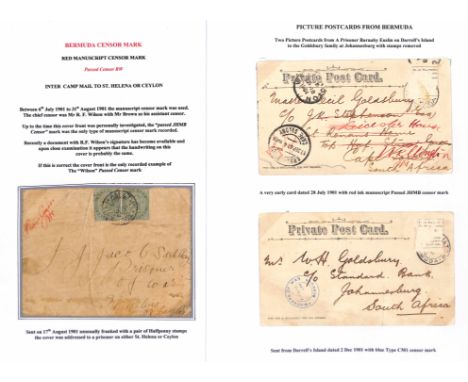 BERMUDA CENSOR MARK
RED MANUSCRIPT CENSOR MARK
Passed Censor RW
INTER CAMP MAIL TO ST. HELENA OR CEYLON
Between 6th July 1901 to 31st August 1901 the manuscript censor mark was used.
The chief censor was Mr R. F. Wilson with Mr Brown as his assistant censor.
Up to the time this cover front was personally investigated, the "passed JHMB
Censor" mark was the only type of manuscript censor mark recorded.
Recently a document with R.F. Wilson's signature has become available and
upon close examination it appears that the handwriting on this
cover is probably the same.
If this is correct the cover front is the only recorded example of
The "Wilson" Passed Censor mark
Prisoner
of War
Sent on 17th August 1901 unusually franked with a pair of Halfpenny stamps
the cover was addressed to a prisoner on either St. Helena or Ceylon
PICTURE POSTCARDS FROM BERMUDA
Two Picture Postcards from A Prisoner Barnaby Euslin on Darrell's Island
to the Goldsbury family at Johannesburg with stamps removed
Private Post Card.
Cecil Goldsbury
South Africa
A very early card dated 28 July 1901 with red ink manuscript Passed JHMB censor mark
Private Post Card.
Mr W. H. Goldsbury
c/o Standard Bank,
Johannesburg
South Africa
Sent from Darrell's Island dated 2 Dec 1901 with blue Type CM1 censor mark